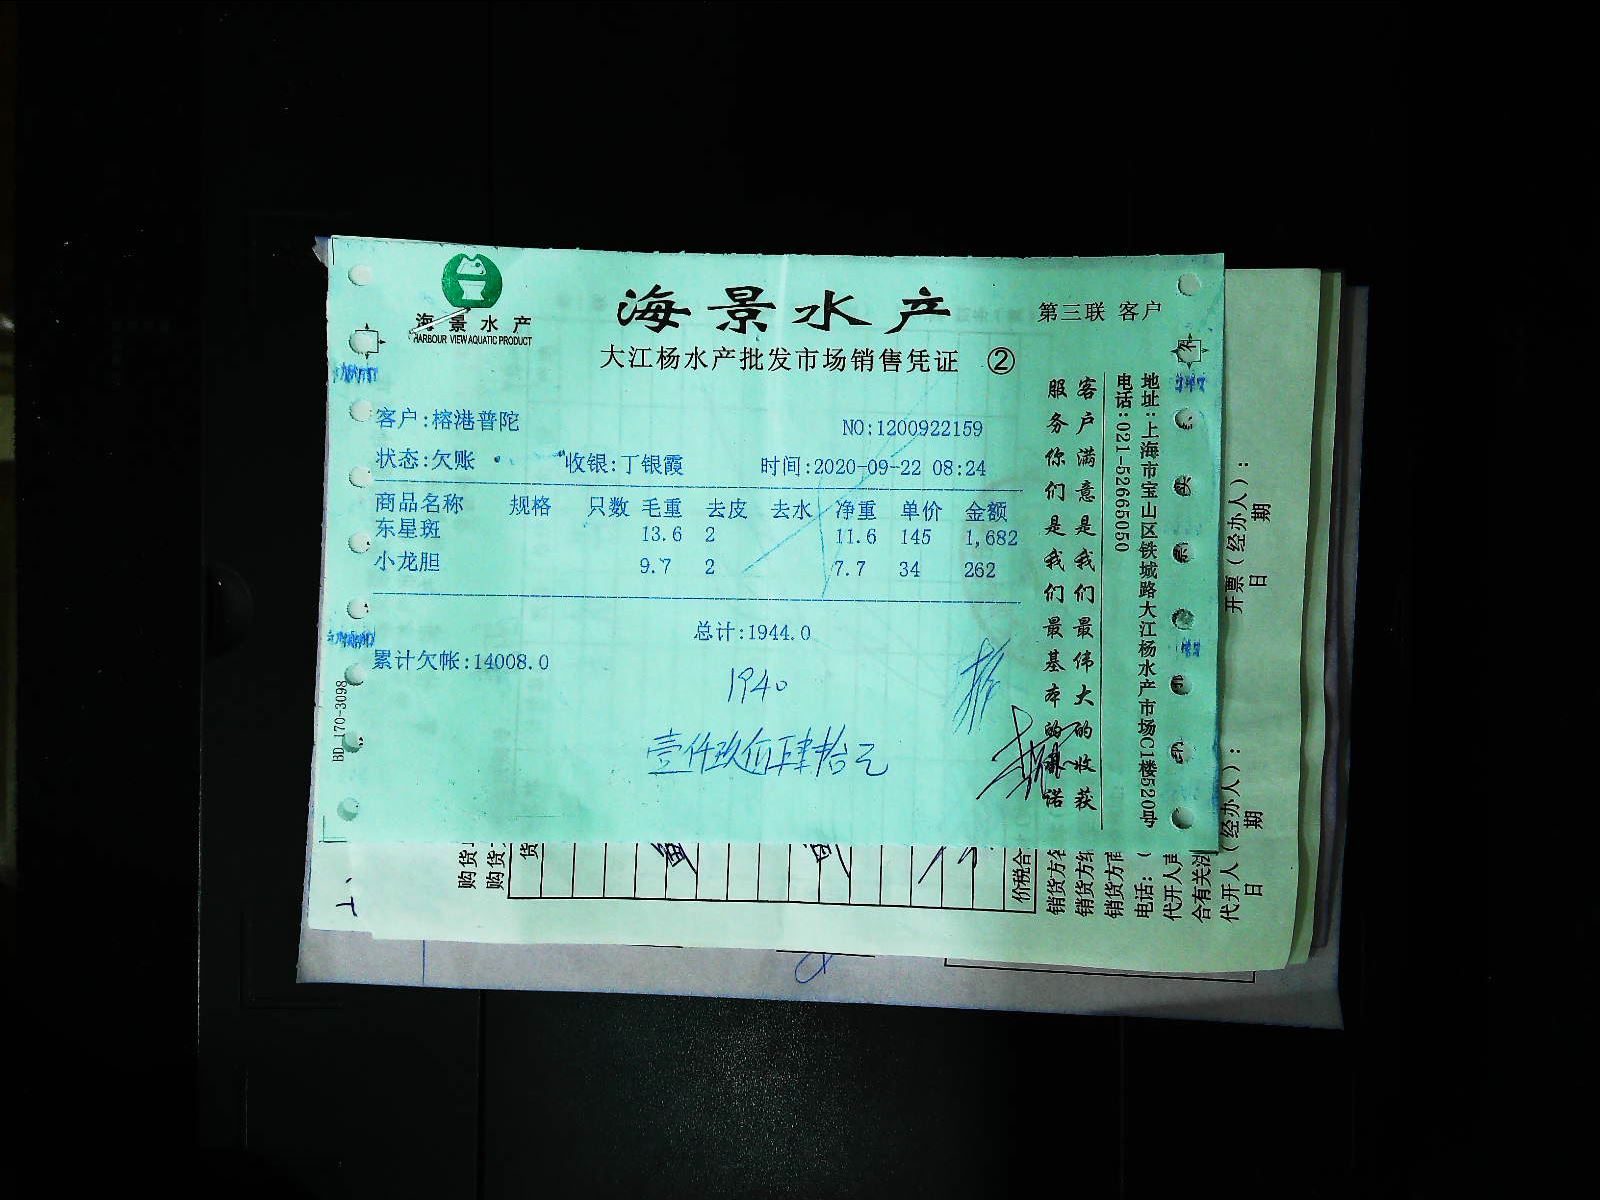 海景水产
HARBOUR VIEW AQUATIC PRODUCT
海景水产
第三联 客户
大江杨水产批发市场销售凭证 ②
客户:榕港普陀
NO:1200922159
状态:欠账 收银:丁银霞 时间:2020-09-22 08:24
商品名称 规格 只数 毛重 去皮 去水 净重 单价 金额
东星斑 13.6 2 11.6 145 1,682
小龙胆 9.7 2 7.7 34 262
总计:1944.0
累计欠帐:14008.0
1940
壹仟玖佰肆拾元
BD 170-3098
客户满意是我们最伟大的收获
服务你们是我们最基本的承诺
地址:上海市宝山区铁城路大江杨水产市场C1楼520号
电话:021-52665050
购货
购货方
货
价税合
销货方名
销货方纳
销货方
电话:
代开人声
含有关法
代开人(经办人):
日期
开票(经办人):
日期